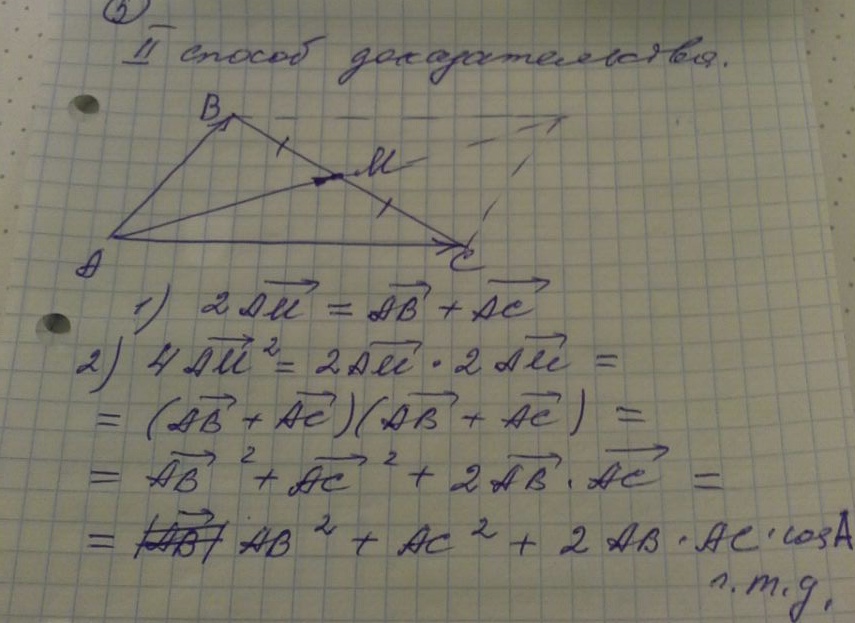 2
II способ доказательства.
B
M
A
C
1) 2AM⃗ = AB⃗ + AC⃗
2) 4AM⃗² = 2AM⃗ · 2AM⃗ =
= (AB⃗ + AC⃗)(AB⃗ + AC⃗) =
= AB⃗² + AC⃗² + 2AB⃗ · AC⃗ =
= |AB⃗| AB² + AC² + 2 AB · AC · cosA
ч.т.д.